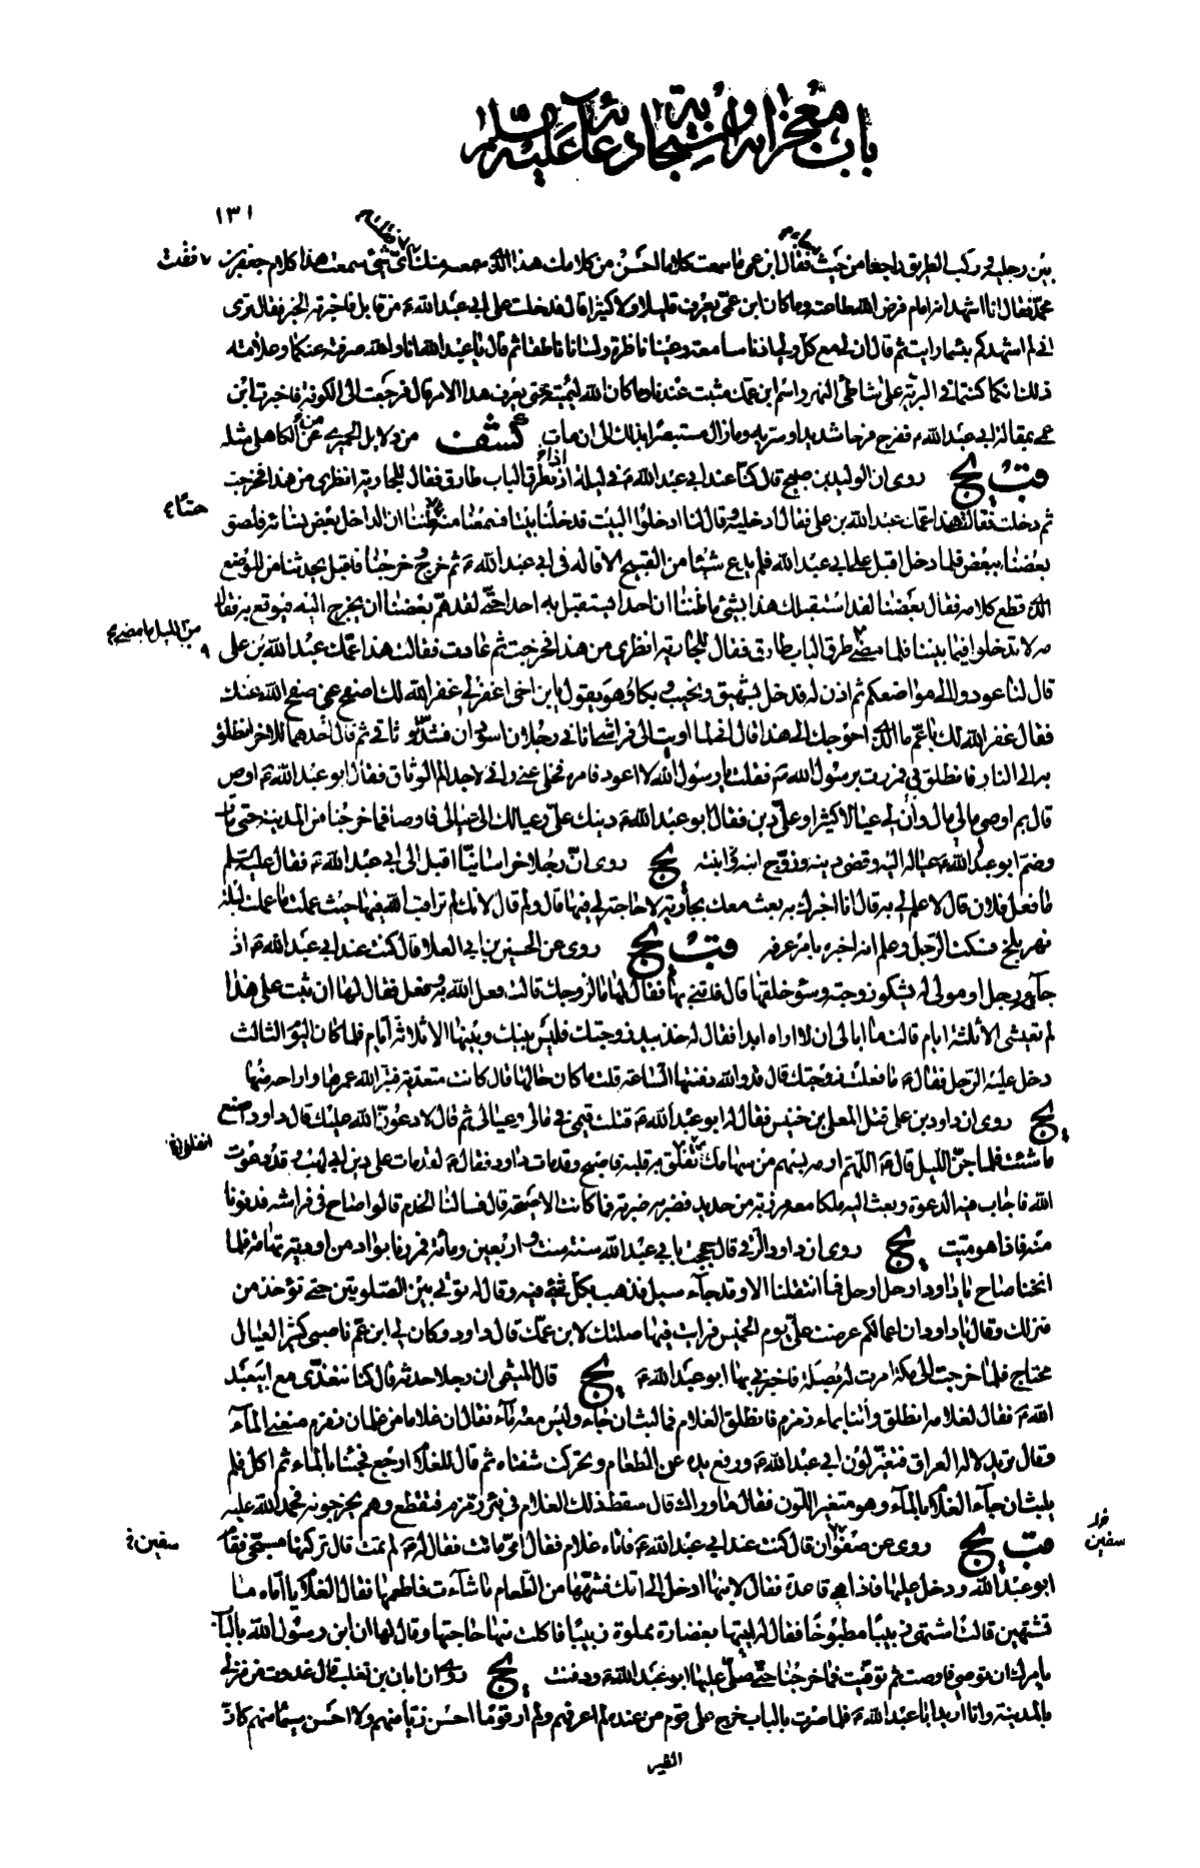 باب معجزاته واستجابة دعائه عليه السلم
١٣١
بين رجليه وركب الطريق راجعا من حيث فقال ابن عمي ما سمعت كلاما احسن من كلامك هذا الذي سمعته منك اي شيء سمعت هذا كلام جعفر بن
فقلت
محمد فقال انا اشهد انه امام فرض الله طاعته وما كان ابن عمي يعرف قليلا ولا كثيرا قال فدخلت على ابي عبد الله ع من قابل فاخبرته الخبر فقال ترى
اني لم اشهدكم بئسما رايت ثم قال ان لي مع كل ولي اذنا سامعة وعينا ناظرة ولسانا ناطقا ثم قال يا عبد الله انا والله صرفته عنكما وعلامة
ذلك انكما كنتما في البرية على شاطئ النهر واسم ابن عمك مثبت عندنا وما كان الله ليميته حتى يعرف هذا الامر قال فرجعت الى الكوفة فاخبرت ابن
عمي بمقالة ابي عبد الله ع ففرح فرحا شديدا وسر به وما زال مستبصرا بذلك الى ان مات كشف من دلايل الحميري عن الكاهلي مثله
قب يج روي ان الوليد بن صبيح قال كنا عند ابي عبد الله ع في ليلة اذ طرق الباب طارق فقال للجارية انظري من هذا فخرجت
ثم دخلت فقالت هذا عمك عبد الله بن علي فقال ادخليه وقال لنا ادخلوا البيت فدخلنا بيتا فسمعنا منه ظننا ان الداخل بعض نسائه فلصق
بعضنا ببعض فلما دخل اقبل على ابي عبد الله فلم يدع شيئا من القبيح الا قاله في ابي عبد الله ع ثم خرج وخرجنا فاقبل يحدثنا من الموضع
الذي قطع كلامه فقال بعضنا لقد استقبلك هذا بشيء ما ظننا ان احدا يستقبل به احدا حتى لقد هم بعضنا ان يخرج اليه فيوقع به فقال
مه لا تدخلوا فيما بيننا فلما مضى طرق الباب طارق فقال للجارية انظري من هذا فخرجت ثم عادت فقالت هذا عمك عبد الله بن علي
من الليل ما مضى
قال لنا عودوا الى مواضعكم ثم اذن له فدخل بشهيق ونحيب وبكاء وهو يقول يا بن اخي اغفر لي غفر الله لك اصفح عني صفح الله عنك
فقال غفر الله لك يا عم ما الذي احوجك الى هذا قال اني لما اويت الى فراشي اتاني رجلان اسودان فشدوا وثاقي ثم قال احدهما للاخر انطلق
به الى النار فانطلق بي فمررت برسول الله ص فقلت يا رسول الله لا اعود فامره فخلى عني واني لاجد الم الوثاق فقال ابو عبد الله ع اوص
قال بم اوصي ما لي مال وان لي عيالا كثيرا وعلي دين فقال ابو عبد الله ع دينك علي وعيالك الى عيالي فاوصى فما خرجنا من المدينة حتى مات
وضم ابو عبد الله ع عياله اليه وقضى دينه وزوج ابنه ابنته يج روي ان رجلا خراسانيا اقبل الى ابي عبد الله ع فقال عليه السلم
ما فعل فلان قال لا علم لي به قال انا اخبرك به بعث معك بجارية لا حاجة لي فيها قال ولم قال لانك لم تراقب الله فيها حيث عملت ما عملت ليلة
نهر بلخ فسكت الرجل وعلم انه اخبره بامر عرفه قب يج روي عن الحسين بن ابي العلا قال كنت عند ابي عبد الله ع اذ
جاءه رجل او مولى له يشكو زوجته وسوء خلقها قال فاتني بها فقال لها ما لزوجك قالت فعل الله به وفعل فقال لها ان ثبت على هذا
لم تعيشي الا ثلثة ايام قالت ما ابالي ان لا اراه ابدا فقال له خذ بيد زوجتك فليس بينك وبينها الا ثلاثة ايام فلما كان اليوم الثالث
دخل عليه الرجل فقال ع ما فعلت زوجتك قال قد والله دفنتها الساعة قلت ما كان حالها قال كانت متعدية فبتر الله عمرها واراحه منها
يج روي ان داود بن علي قتل المعلى بن خنيس فقال له ابو عبد الله ع قتلت قيمي في مالي وعيالي ثم قال لادعون الله عليك قال داود اصنع
ما شئت فلما جن الليل قال ع اللهم ارمه بسهم من سهامك تفلق به قلبه فاصبح وقد مات داود فقال ع لقد مات على دين ابي لهب وقد دعوت
الله فاجاب فيه الدعوة وبعث اليه ملكا معه مرزبة من حديد فضربه ضربة فما كانت الا صيحة قال فسالنا الخدم قالوا صاح في فراشه فدنونا
منه فاذا هو ميت يج روي ان داود الرقي قال حججت بابي عبد الله سنة ست واربعين ومائة فمررنا بواد من اودية تهامة فلما
انخنا صاح يا داود ارحل ارحل فما انتقلنا الا وقد جاء سيل فذهب بكل شيء فيه وقال له تؤتى بين الصلوتين حتى تؤخذ من
منزلك وقال يا داود ان اعمالكم عرضت علي يوم الخميس فرايت فيها صلتك لابن عمك قال داود وكان لي ابن عم ناصبي كثير العيال
محتاج فلما خرجت الى مكة امرت له بصلة فاخبرني بها ابو عبد الله ع يج قال الميثمي ان رجلا حدثه قال كنا نتغدى مع ابي عبد
الله ع فقال لغلامه انطلق وأتنا بماء زمزم فانطلق الغلام فما لبث ان جاء وليس معه ماء فقال ان غلاما من غلمان زمزم منعني الماء
وقال تريد لاله العراق فتغير لون ابي عبد الله ع ورفع يده عن الطعام وتحركت شفتاه ثم قال للغلام ارجع فجئنا بالماء ثم اكل فلم
يلبث ان جاء الغلام بالماء وهو متغير اللون فقال ما وراك قال سقط ذلك الغلام في بئر زمزم فتقطع وهم يخرجونه فحمد الله عليه
قب يج روي عن صفوان قال كنت عند ابي عبد الله ع فاتاه غلام فقال امي ماتت فقال له ع لم تمت قال تركتها مسجى فقام
سفين
ابو عبد الله ودخل عليها فاذا هي قاعدة فقال لابنها ادخل الى امك فشهها من الطعام ما شاءت فاطعمها فقال الغلام يا اماه ما
تشتهين قالت اشتهي زبيبا مطبوخا فقال له ائتها بغضارة مملوة زبيبا فاكلت منها حاجتها وقال لها ان ابن رسول الله بالباب
يامرك ان توصي فاوصت ثم توفيت فما خرجنا حتى صلى عليها ابو عبد الله ع ودفنت يج روي ان ابان بن تغلب قال غدوت من منزلي
بالمدينة وانا اريد ابا عبد الله ع فلما صرت بالباب خرج علي قوم من عنده لم اعرفهم ولم ار قوما احسن زيا منهم ولا احسن سيماء منهم كان
الطير